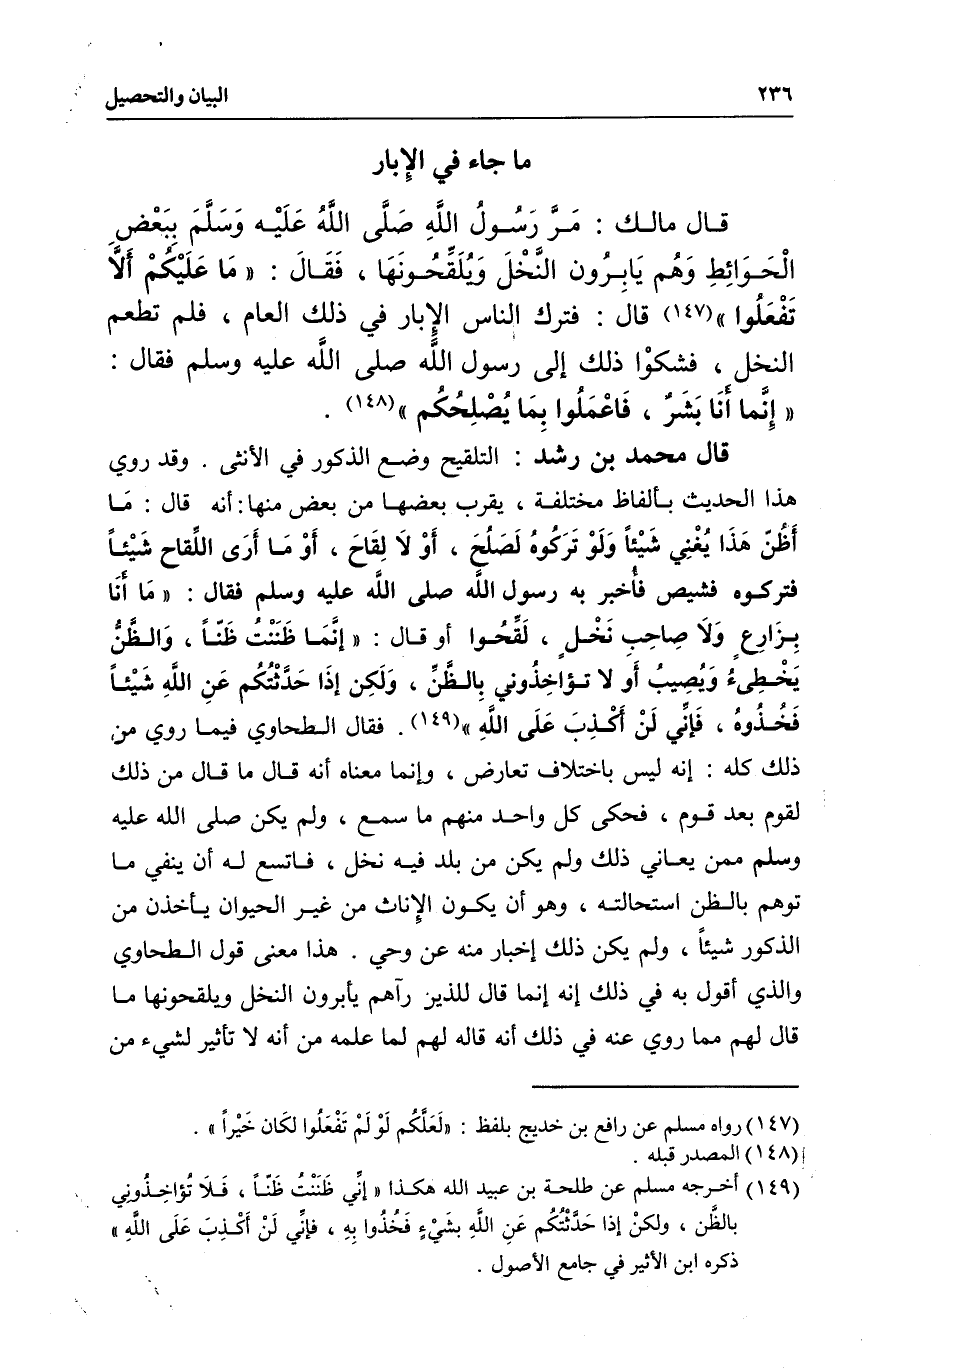 ٢٣٦ البيان والتحصيل
ما جاء في الإبار
قال مالك : مَرَّ رَسُولُ اللَّهِ صَلَّى اللَّهُ عَلَيْه وَسَلَّمَ بِبَعْضِ
الْحَوَائِطِ وَهُم يَابِرُون النَّخْلَ وَيُلَقِّحُونَهَا ، فَقَالَ : « مَا عَلَيْكُمْ أَلاَّ
تَفْعَلُوا »(١٤٧) قال : فترك الناس الإبار في ذلك العام ، فلم تطعم
النخل ، فشكوْا ذلك إلى رسول اللَّه صلى اللَّه عليه وسلم فقال :
« إِنَّما أَنَا بَشَرٌ ، فَاعْمَلُوا بِمَا يُصْلِحُكُم »(١٤٨) .
قال محمد بن رشد : التلقيح وضع الذكور في الأنثى . وقد روي
هذا الحديث بألفاظ مختلفة ، يقرب بعضها من بعض منها: أنه قال : مَا
أَظُنّ هَذَا يُغْنِي شَيْئاً وَلَوْ تَرَكُوهُ لَصَلُحَ ، أَوْ لاَ لِقَاحَ ، أَوْ مَا أَرَى اللّقاح شَيْئاً
فتركوه فشيص فأُخبر به رسول اللَّه صلى اللَّه عليه وسلم فقال : « مَا أَنَا
بِزَارِعٍ وَلاَ صِاحِبِ نَخْلٍ ، لَقِّحُوا أو قال : « إِنَّمَا ظَنَنْتُ ظَنّاً ، وَالظَّنُّ
يَخْطِىءُ وَيُصِيبُ أَو لا تؤاخِذُوني بِالظَّنِّ ، وَلَكِن إِذَا حَدَّثْتُكُم عَنِ اللَّهِ شَيْئاً
فَخُذُوهُ ، فَإِنِّي لَنْ أَكْذِبَ عَلَى اللَّهِ »(١٤٩) . فقال الطحاوي فيما روي من
ذلك كله : إنه ليس باختلاف تعارض ، وإنما معناه أنه قال ما قال من ذلك
لقوم بعد قوم ، فحكى كل واحد منهم ما سمع ، ولم يكن صلى الله عليه
وسلم ممن يعاني ذلك ولم يكن من بلد فيه نخل ، فاتسع له أن ينفي ما
توهم بالظن استحالته ، وهو أن يكون الإناث من غير الحيوان يأخذن من
الذكور شيئاً ، ولم يكن ذلك إخبار منه عن وحي . هذا معنى قول الطحاوي
والذي أقول به في ذلك إنه إنما قال للذين رآهم يأبرون النخل ويلقحونها ما
قال لهم مما روي عنه في ذلك أنه قاله لهم لما علمه من أنه لا تأثير لشيء من
(١٤٧) رواه مسلم عن رافع بن خديج بلفظ : «لَعَلَّكُم لَوْ لَمْ تَفْعَلُوا لكَان خَيْراً » .
(١٤٨) المصدر قبله .
(١٤٩) أخرجه مسلم عن طلحة بن عبيد الله هكذا « إِنِّي ظَنَنْتُ ظَنّاً ، فَلاَ تُؤَاخِذُونِي
بالظَّن ، ولكنْ إِذَا حَدَّثْتُكُم عَنِ اللَّهِ بشَيْءٍ فَخُذُوا بِهِ ، فإنِّي لَنْ أَكْذِبَ عَلَى اللَّهِ »
ذكره ابن الأثير في جامع الأصول .